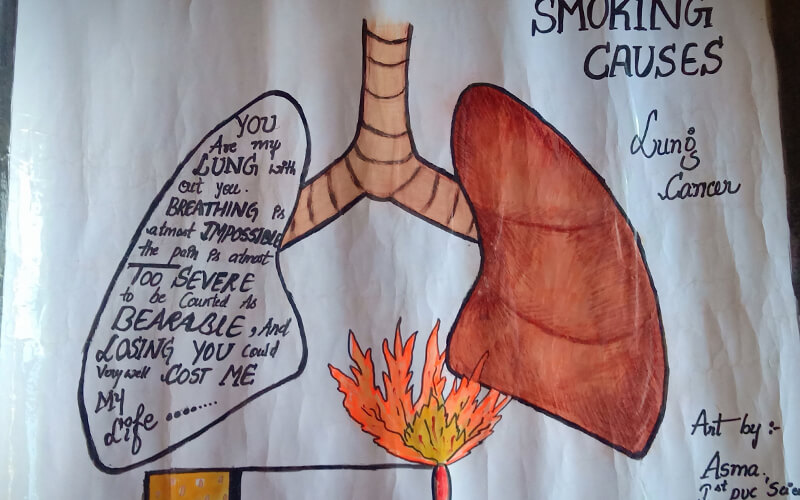 SMOKING
CAUSES
Lung
is
Cancer
YOU
Are my
LUNG with
out you.
BREATHING is
atmost IMPOSSIBLE
the pain is atmost
TOO SEVERE
to be Counted As
BEARABLE, And
LOSING YOU Could
Very well COST ME
MY
Life ........
Art by :-
Asma.
Ist PUC